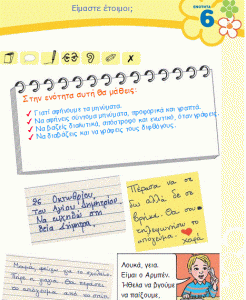 Είμαστε έτοιμοι;
ΕΝΟΤΗΤΑ
6
Στην ενότητα αυτή θα μάθεις:
Γιατί αφήνουμε τα μηνύματα.
Να αφήνεις σύντομα μηνύματα, προφορικά και γραπτά.
Να βάζεις διαλυτικά, απόστροφο και ενωτικό, όταν γράφεις.
Να διαβάζεις και να γράφεις τους διφθόγγους.
26 Οκτωβρίου,
του Αγίου Δημητρίου
Να ευχηθώ στη
θεία Δήμητρα.
Πέρασα να σε
δω αλλά δε σε
βρήκα. Θα σου
τηλεφωνήσω το
απόγευμα.
Χαρά
Μαμά,
Λουκά, γεια.
Είμαι ο Αρμπέν.
Ήθελα να βγούμε
να παίξουμε,